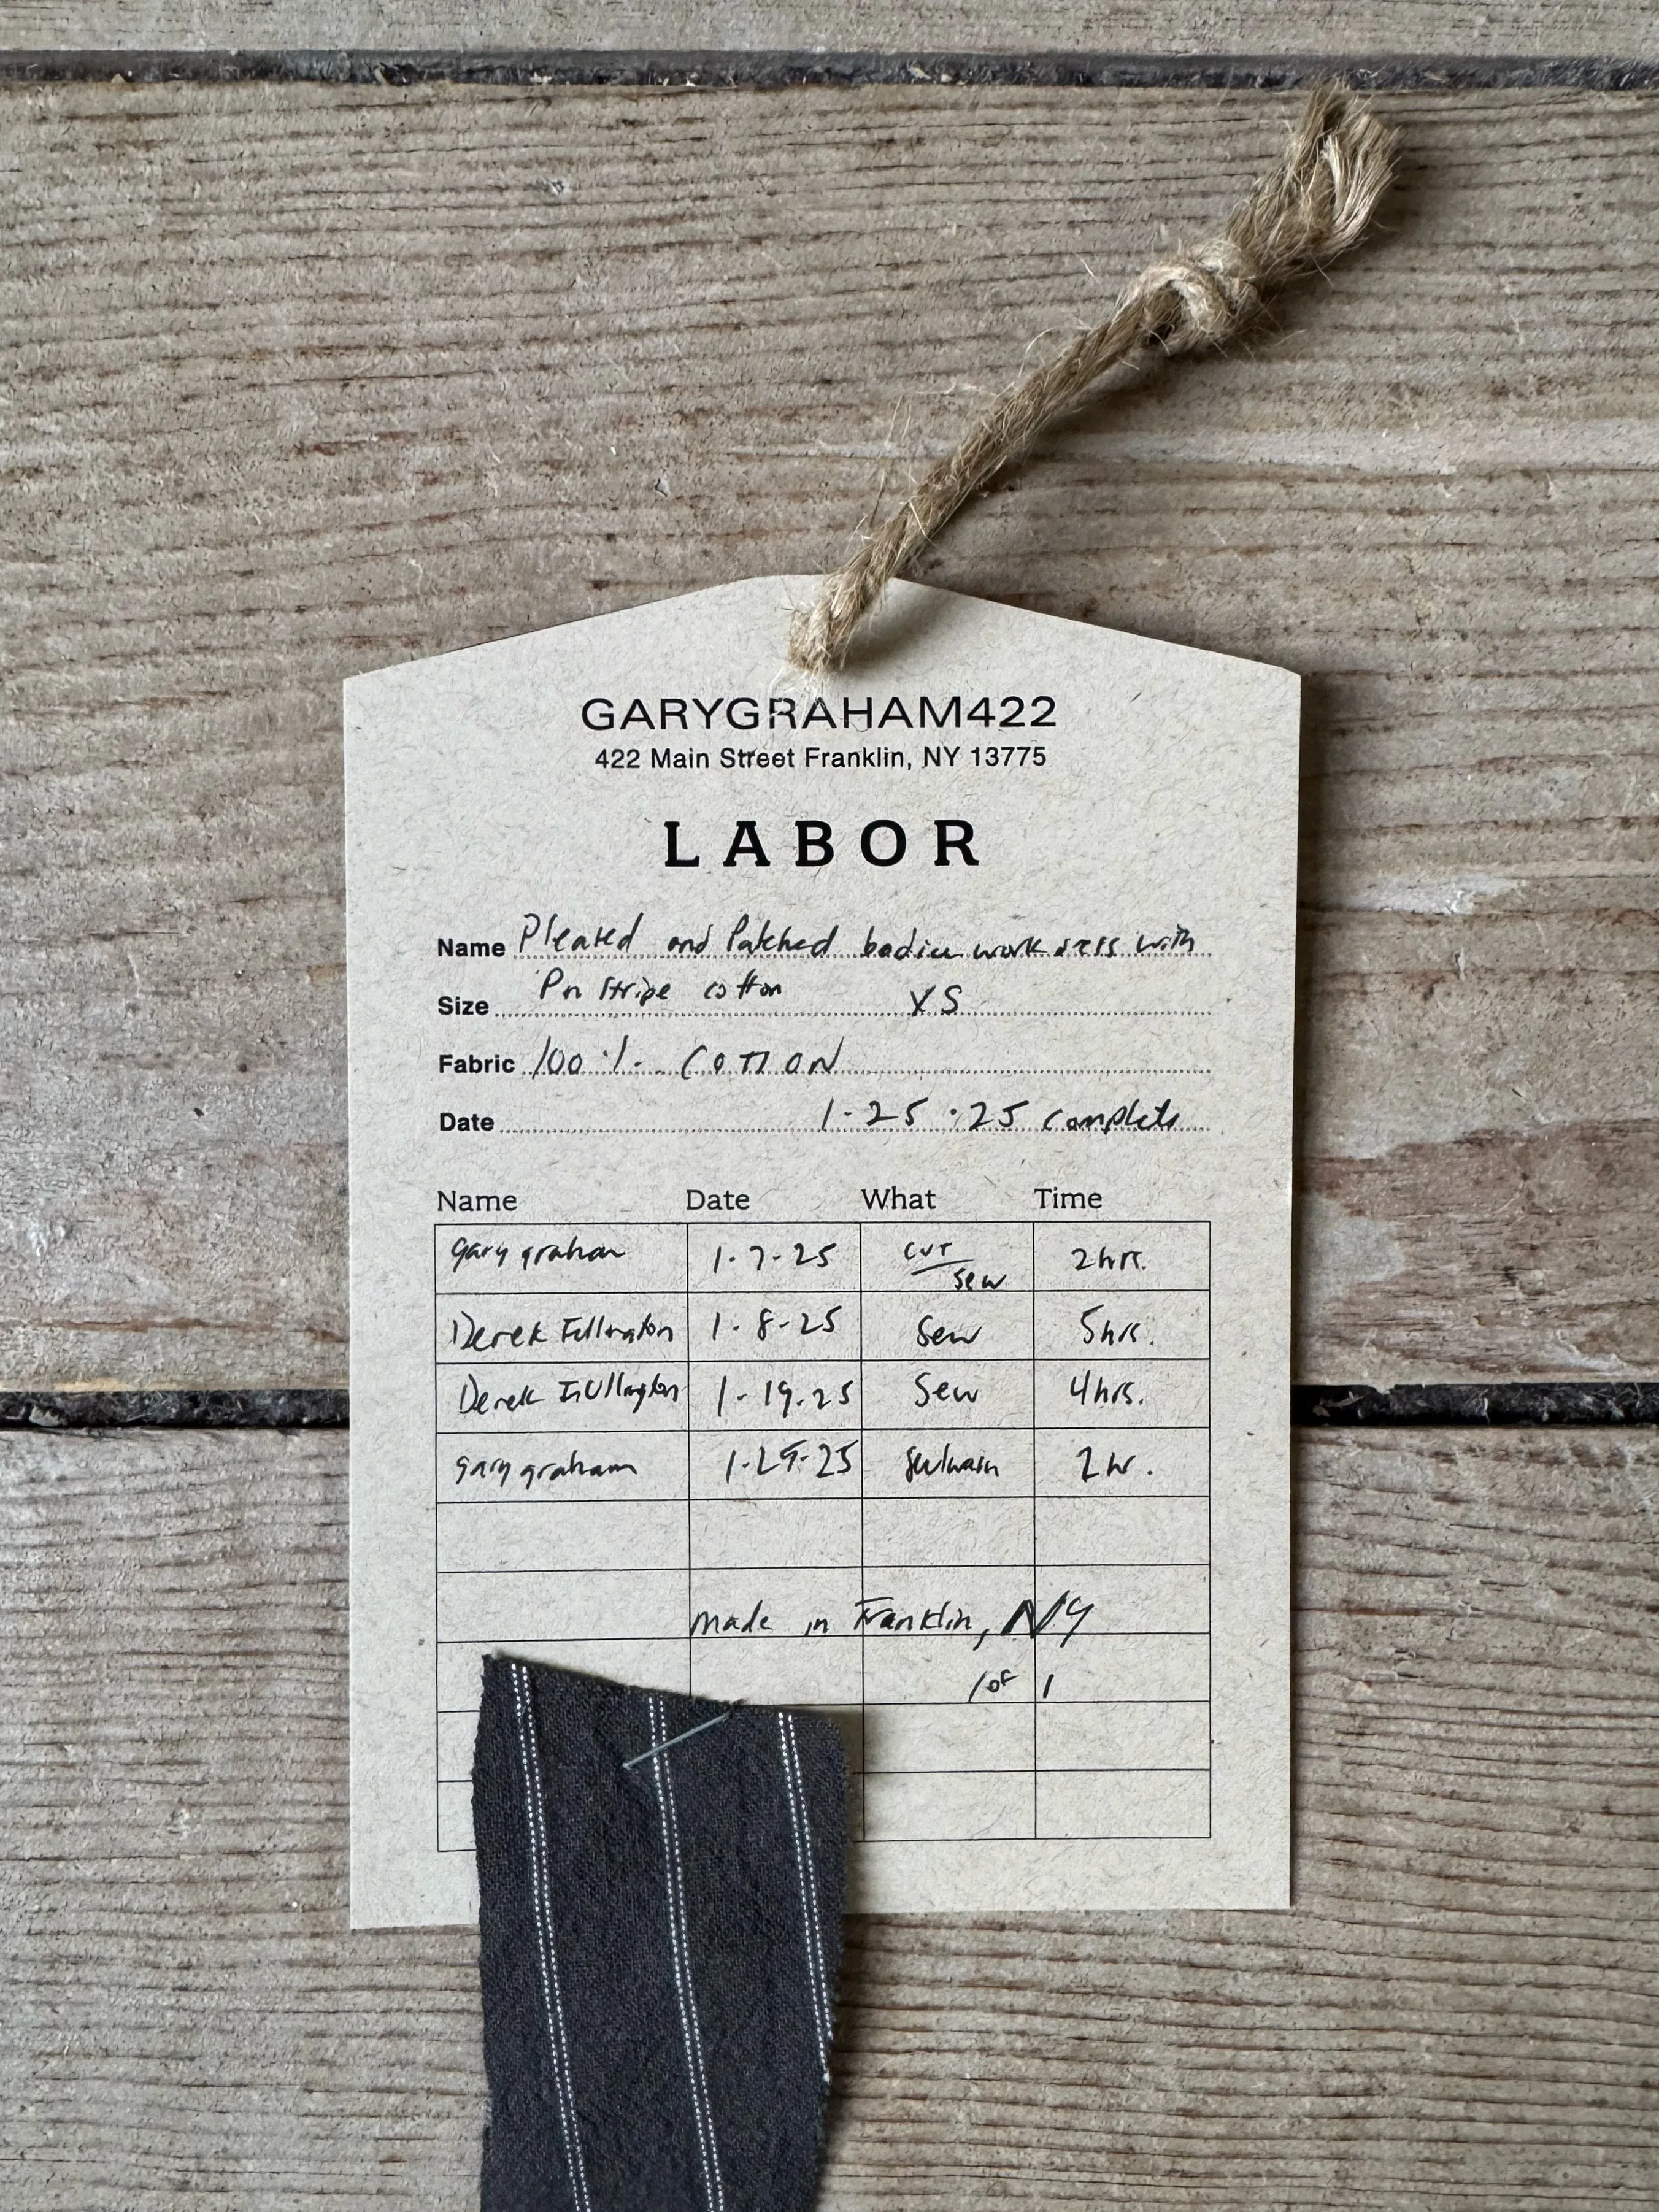 GARYGRAHAM422
422 Main Street Franklin, NY 13775
LABOR
Name Pleated and Patched bodice work dress with
Pin Stripe cotton
Size XS
Fabric 100 % COTTON
Date 1.25.25 complete
Name Date What Time
gary graham 1.7.25 cut/sew 2hrs.
Derek 1.8.25 Sew 5hrs.
Derek 1.19.25 Sew 4hrs.
gary graham 1.25.25 2hr.
made in Franklin, NY
1 of 1